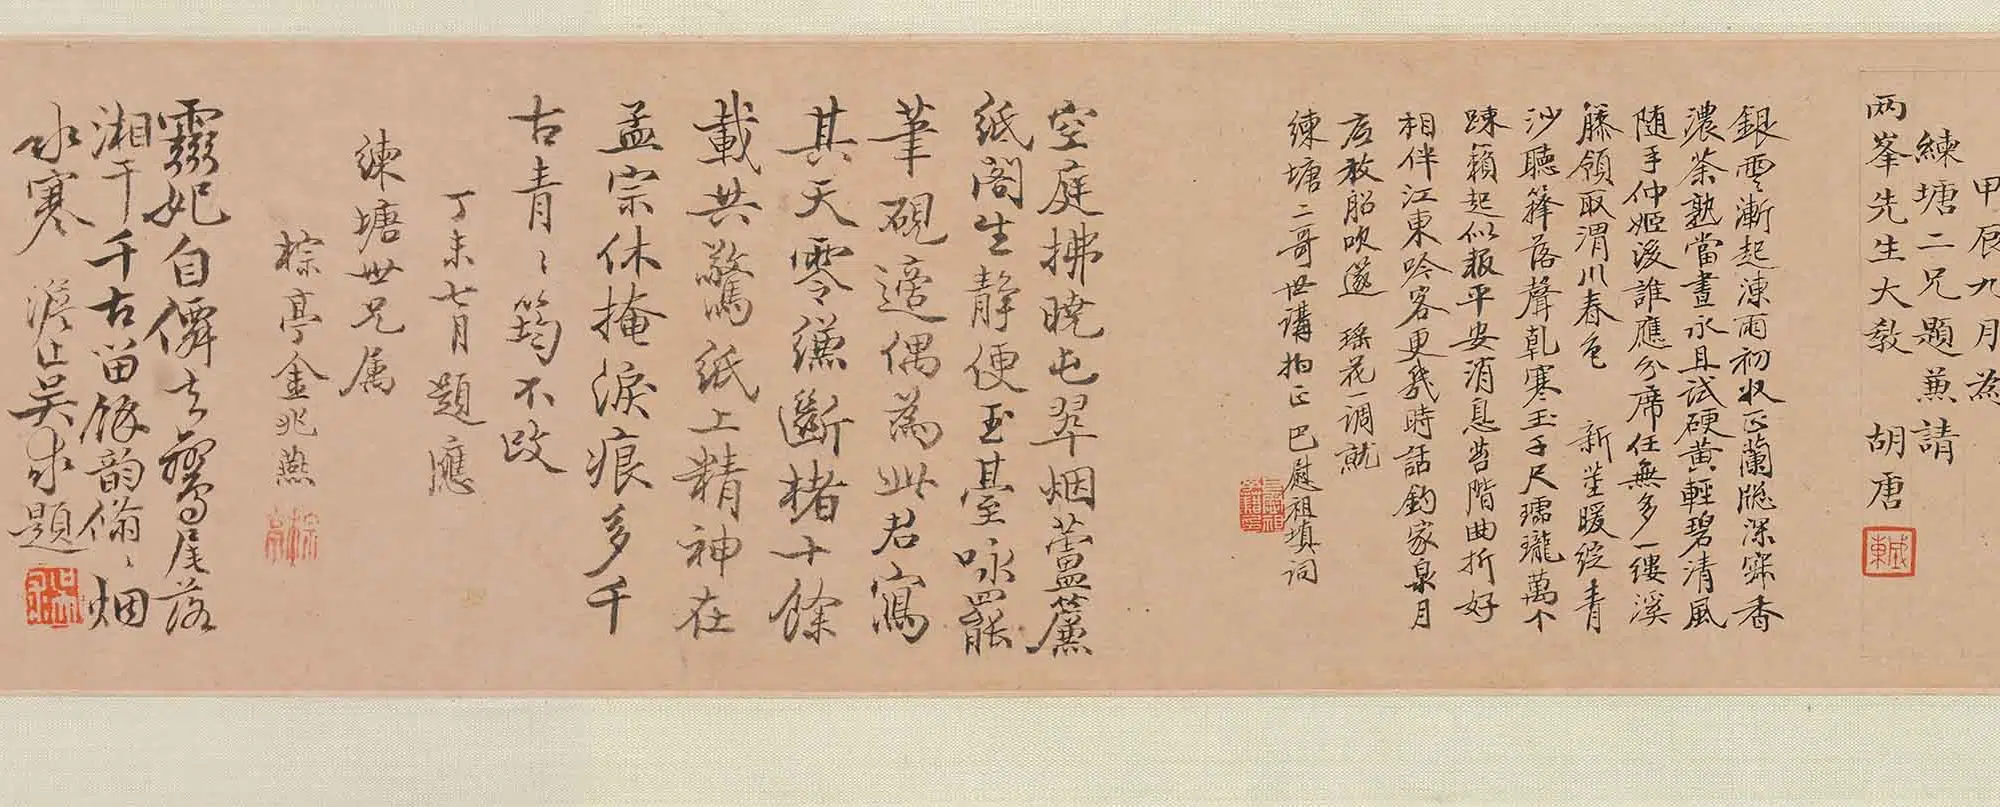 甲辰九月為
練塘二兄題兼請
兩峯先生大教　胡唐
誠東
銀雲漸起涷雨初收正蘭牎深寐香
濃茶熟當晝永且試硬黃輕碧清風
随手仲姬後誰應分席任無多一縷溪
籐領取渭川春色　新篁暖綻青
沙聽籜落聲乹寒玉千尺瓏萬个
踈籟起似報平安消息苔階曲折好
相伴江東吟客更幾時話鈞家泉月
夜敎船吹邃　瑤花一調就
練塘二哥世講拍正巴慰祖填詞
空庭拂曉屯翠烟蘆簾
紙閣生靜便玉臺咏罷
筆硯適偶為此君寫
其天零縑斷楮十餘
載共驚紙上精神在
孟宗休掩淚痕多千
古青〻筠不改
丁未七月題應
練塘世兄属
棕亭金兆燕
棕亭
靈妃自僲去鸞尾落
湘干千古留餘韵翛〻烟
水寒　澹止吳求題